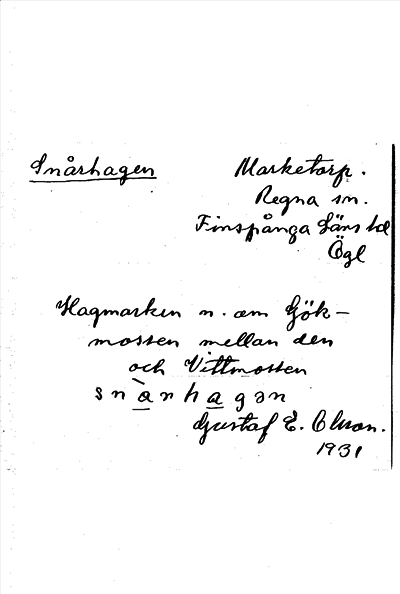 Snårhagen
Marketorp.
Regna sn.
Finspånga läns hd
Ögl
Hagmarken n. om Gök-
mossen mellan den
och Vittmossen
Gustaf E. Olsson.
1931